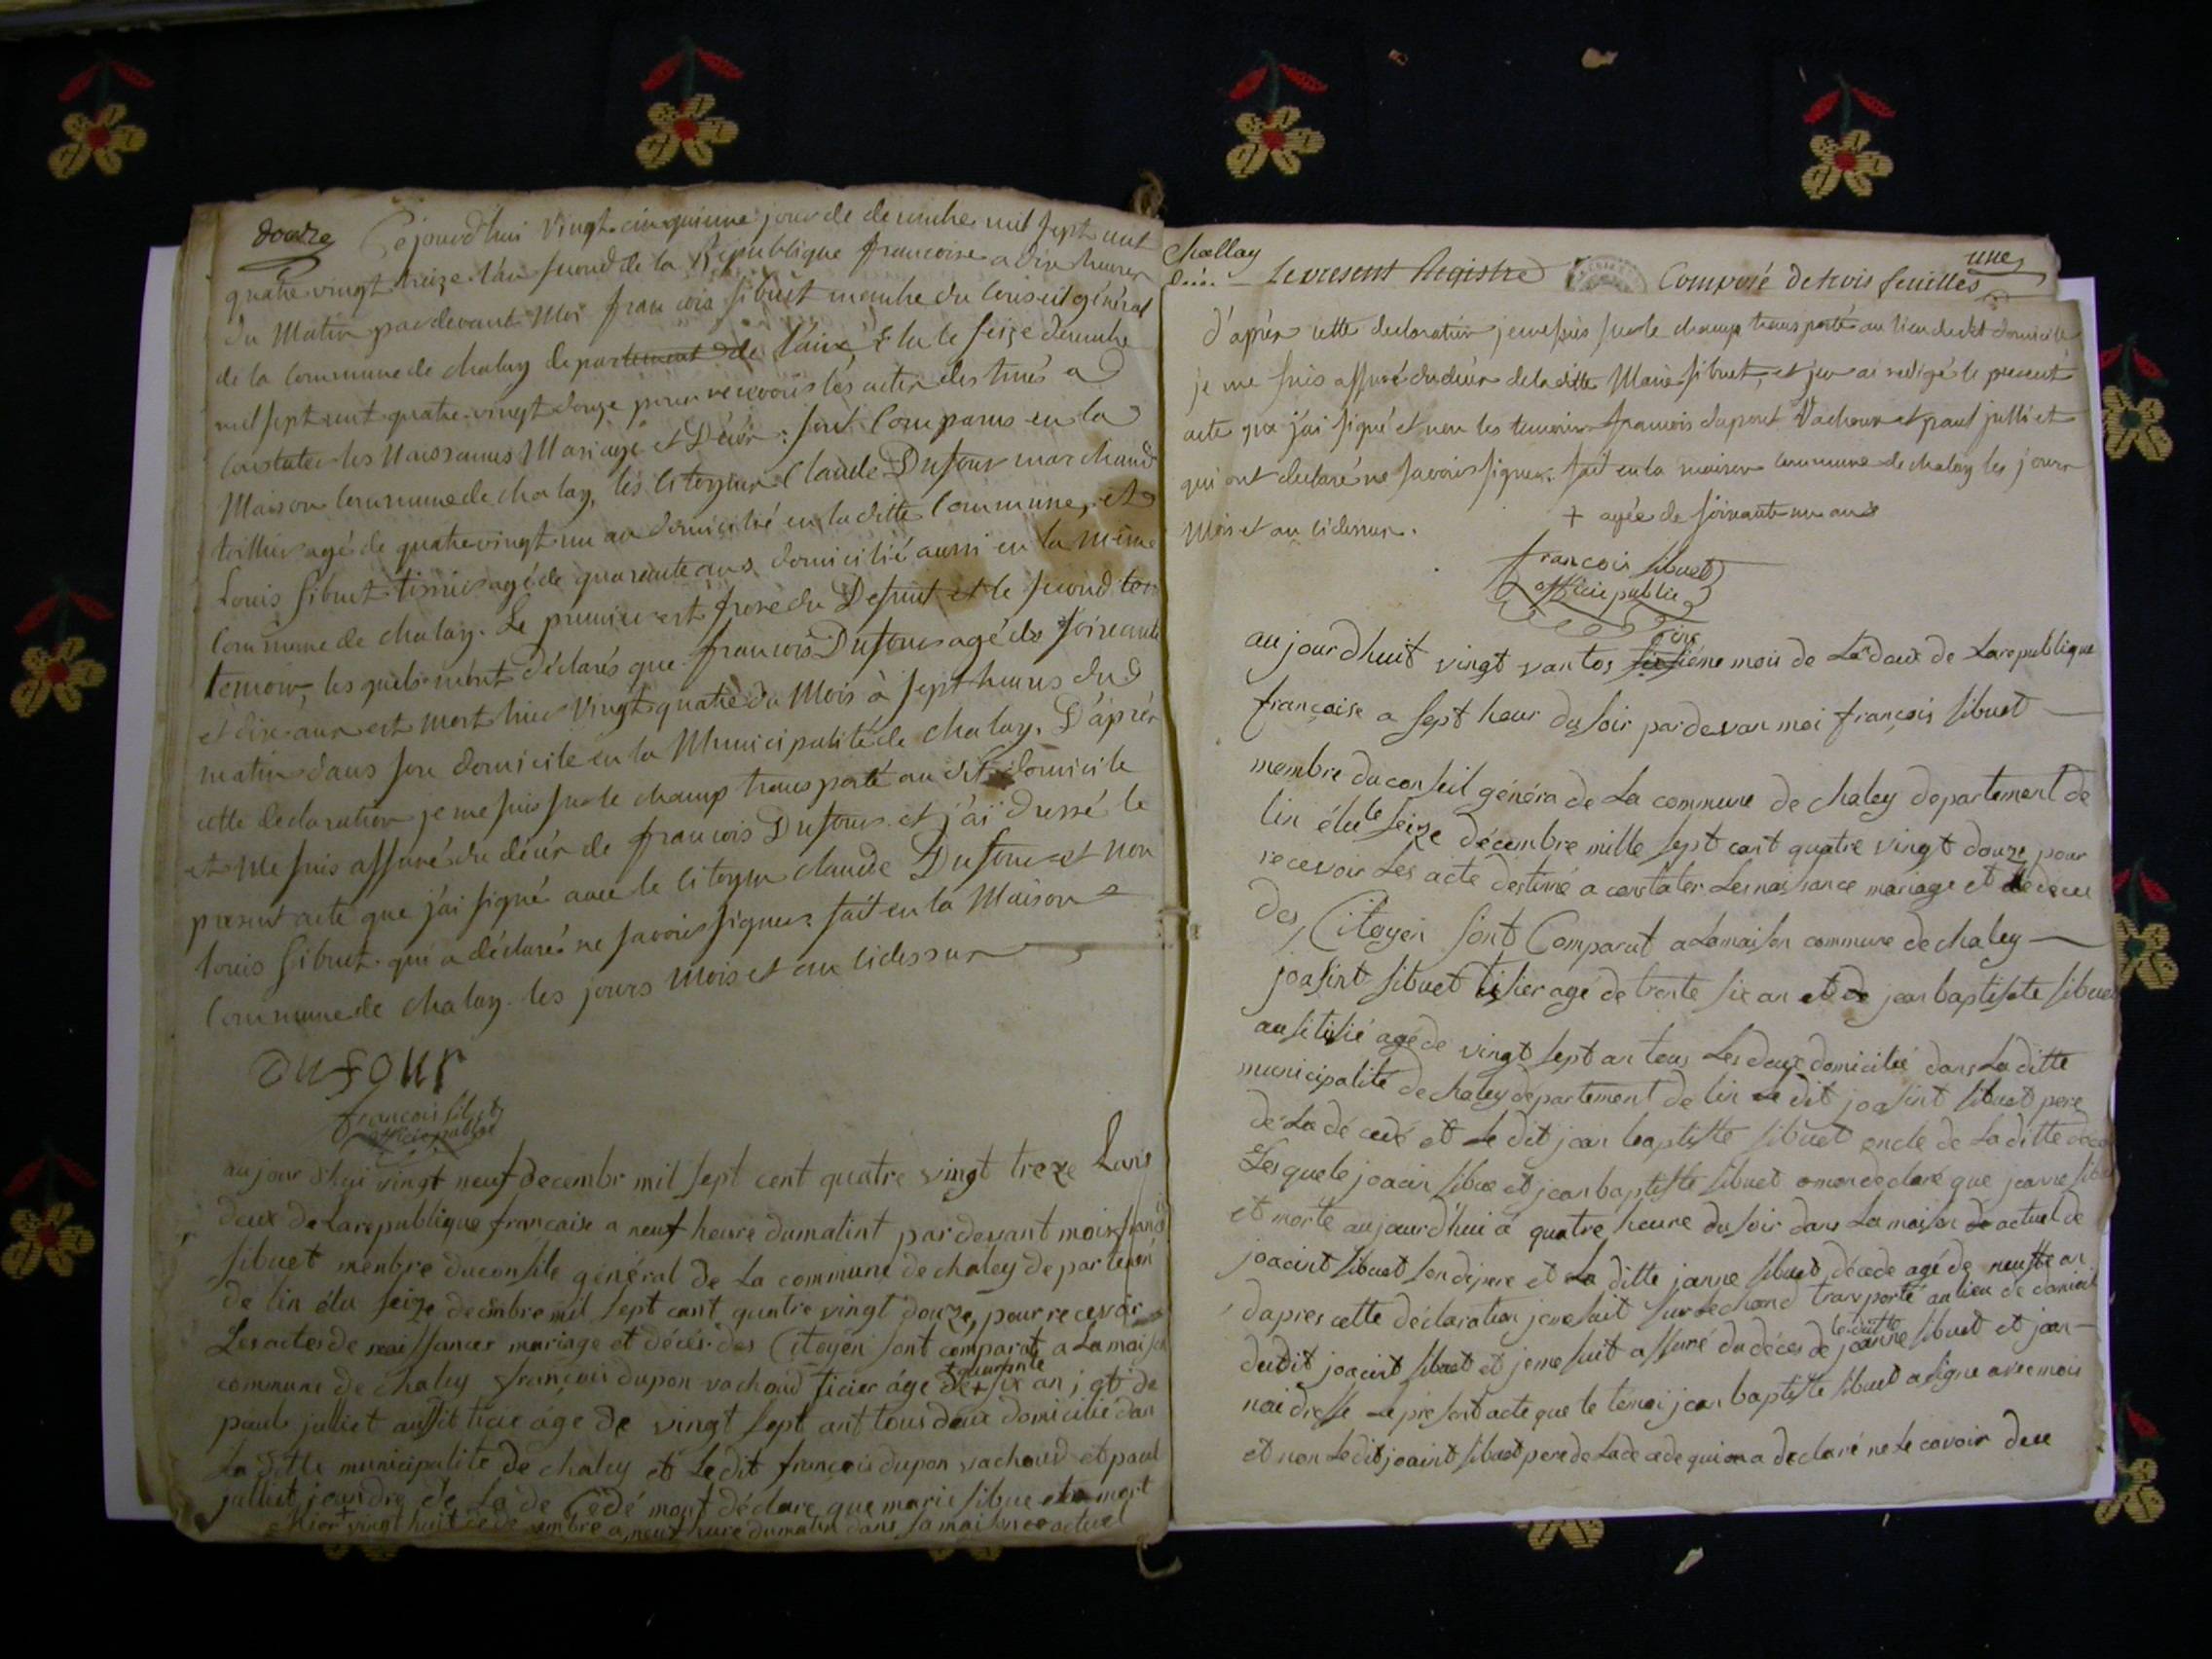 douze
Cejourd'hui vingt cinquieme jour de decembre mil sept cent
quatre vingt treize l'an second de la République francoise a dix heures
du Matin pardevant Moi francois Sibuet membre du Conseil général
de la Commune de chaley departement de l'ain, élu le seize decembre
mil sept cent quatre-vingt douze pour recevoir les actes destinés a
Constater les Naissances Mariage et Décès: sont Comparus en la
Maison Commune de chaley, les Citoyens Claude Dufour marchand
agé de quatrevingt un an domicilié en laditte Commune, et
Louis Sibuet tissier agé de quarante ans domicilié aussi en la même
Commune de chaley. Le premier est frere du Defunt et le second
temoin, les quels m'ont déclarés que francois Dufour agé de soixante
et dix ans est mort hier vingt quatre du Mois à sept heures du
matin dans son domicile en la Municipalité de chaley. D'après
cette declaration je me suis sur le champ transporté au dit domicile
et me suis assuré du décès de francois Dufour et j'ai dressé le
present acte que j'ai signé avec le Citoyen claude Dufour et non
Louis Sibuet qui a déclaré ne savoir signer: fait en la Maison
Commune de chaley les jours mois et an cidessus
DUfOUr
francois Sibuet
officie public
aujourd'hui vingt neuf decembr mil sept cent quatre vingt treze Lans
deux de La republique francaise a neuf heure dumatint pardevant mois
sibuet menbre duconsile général de La commune de chaley departemen
de lin élu seize decembre mil sept cant quatre vingt douze, pour recevoir
Les actes de naissances mariage et décés des Citoyén sont comparut a La maison
quarante
commune de chaley françois dupon vachoud ticier áge de + six an j et de
paul julliet aussit ticie áge de vingt sept ant tous deux domicilié dan
La ditte municipalite de chaley et Ledit françois dupon vachoud et paul
julliet jeandre de La de Cedé mont déclare que marie sibue mort
hier + vingt huit de desembre a neuf hure dumatin dans sa maison actuel
Challay
Le present Registre Composé de trois feuilles
une
d'après cette declaration je me suis sur le champ transporté au lieu dudit domicile
je me suis assuré du décès de laditte Marie Sibuet, et j'en ai redigé le present
acte que j'ai signé et non les temoins francois dupont Vachoux et paul julliet
qui ont declaré ne savoir signer: fait en la maison commune de chaley les jours
Mois et an cidessus.
+ agée de soixante un ans
francois sibuet
officie public
six
aujourdhuit vingt vantos siene mois de La deux de La republique
française a sept heur du soir pardevan moi françois sibuet
membre du conseil généra de La commune de chaley departement de
lin élu le seize décembre mille sept cant quatre vingt douze pour
recevoir Les acte destiné a constater Les naissance mariage et
des Citoyén sont Comparut a La maison commune de chaley
joasint sibuet tisier age de trente six an et de jean baptiste sibuet
ausi tisié agé de vingt sept an tous Les deux domicilié dans La ditte
municipalité de chaley departement de lin Le dit joasint sibuet pere
de La de cedé et Le dit jean baptiste sibuet oncle de La ditte
Lesquele joacin sibue et jean baptiste sibuet declaré que jeanne
et morte aujourd'hui a quatre heure du soir dans La maison actuel de
joacint sibuet son dipere et La ditte janne sibuet décede agé de an
dapres cette déclaration je me suit sur Le chand transporté au lieu de
laditte
dudit joacint sibuet et je me suit assuré du déces de jeanne sibuet et jean
nai dresse Le present acte que le temoi jean baptiste sibuet a signe avec moi
et non Le dit joacint sibuet pere de La de cede qui a declaré ne Le